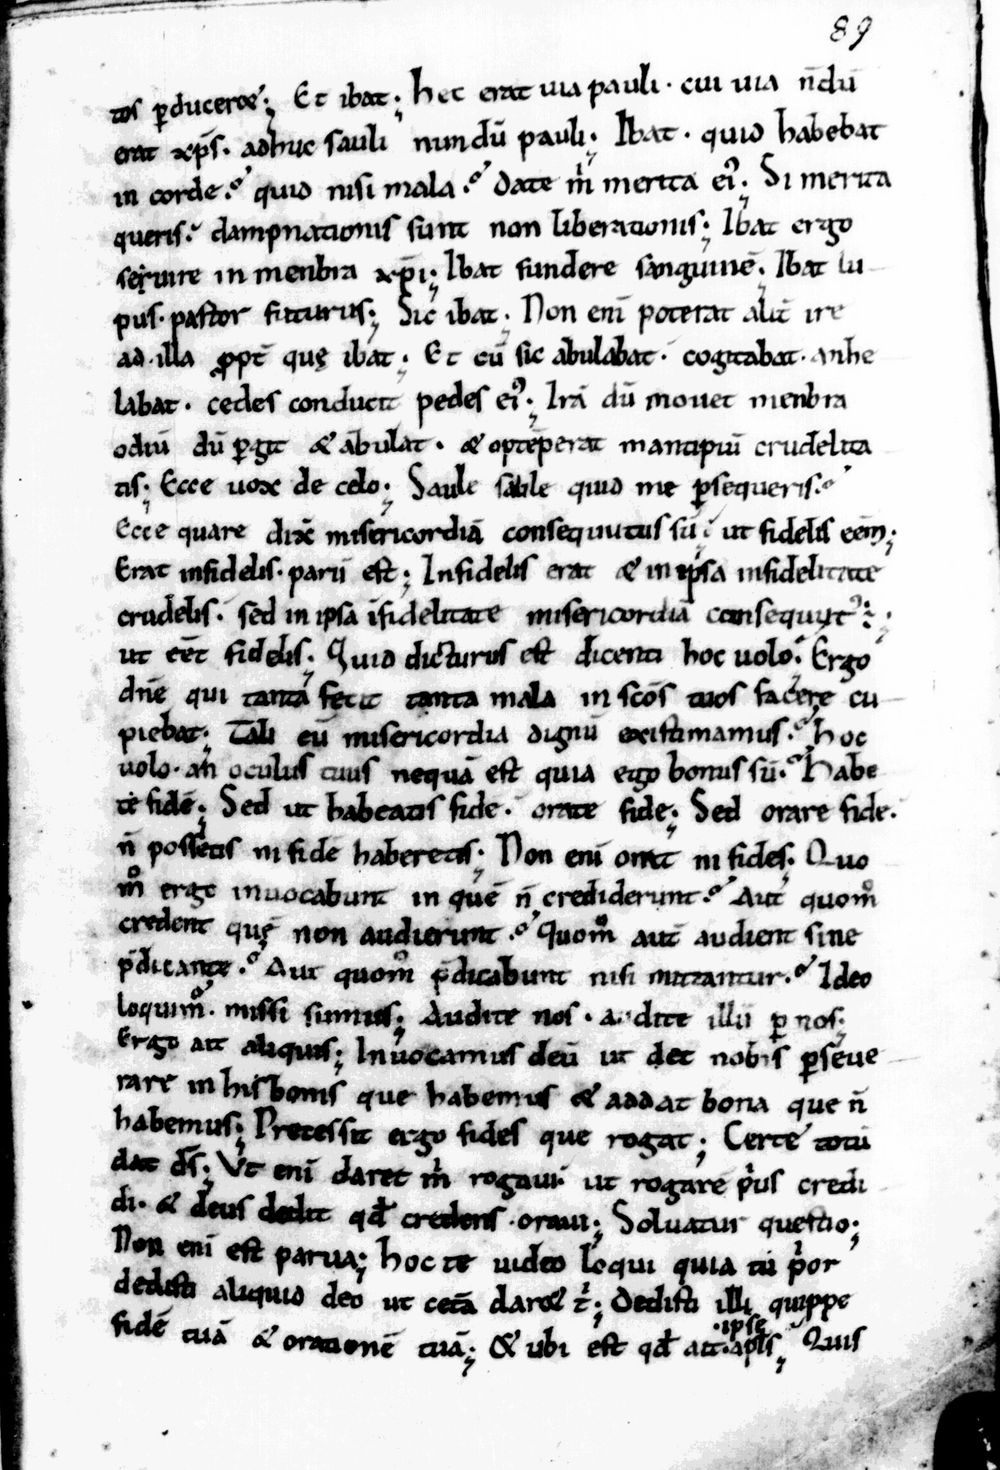 89
tos ꝑduceret; Et ibat; hec erat uia pauli · cui uia n̄dū
erat xp̄s · adhuc sauli nundū pauli; Ibat · quid habebat
in corde? quid nisi mala? date m̄ merita ei᷒; Si merita
queris · dampnationis sunt non liberationis; Ibat ergo
seruire in menbra xp̄i; Ibat fundere sanguinē · Ibat lu
pus · pastor futurus; Sic ibat · Non enī poterat alit̄ ire
ad · illa ꝓpt̄ quę ibat; Et cū sic abulabat · cogitabat · anhe
labat · cedes conducit pedes ei᷒; Irā dū mouet menbra
odiū dū ꝑgit & ābulat · & optēperat mancipiū crudelita
tis; Ecce uox de celo; Saule saule quid me ꝑsequeris?
Ecce quare dix̄ misericordiā consequutus sū · ut fidelis eēm;
Erat infidelis · parū est; Infidelis erat & in ipsa infidelitate
crudelis · sed in ipsa īfidelitate misericordiā consequut᷒ ÷;
ut eēt fidelis; Quid dicturus est dicenti hoc uolo · Ergo
dn̄e qui tanta fecit tanta mala in scōs tuos facere cu
piebat; Tali eū misericordia dignū existimamus? hoc
uolo · an̄ oculus tuus nequā est quia ego bonus sū? Habe
te fidē; Sed ut habeatis fidē · orate fidē; Sed orare fidē ·
n̄ possetis ni fidē haberetis; Non enī orat ni fides; Quo
m̊ ergo inuocabunt in quē n̄ crediderunt? Aut quom̊
credent quę non audierunt? Quom̊ aut̄ audient sine
p̄dicante? Aut quom̊ p̄dicabunt nisi mittantur? Ideo
loquim᷒ · missi sumus; Audite nos · audite illū ꝑ nos;
Ergo ait aliquis; Inuocamus deū ut det nobis ꝑseue
rare in his bonis que habemus & addat bona que n̄
habemus; Precessit ergo fides que rogat; Certe totū
dat ds̄; Vt enī daret m̄ rogaui · ut rogarē p̄us credi
di · & deus dedit qđ credens · oraui; Soluatur questio;
Non enī est parua; hoc te uideo loqui quia tū p̄or
dedisti aliquid deo ut cetā daret t̄; Dedisti illi quippe
fidē tuā & orationē tuā; & ubi est qđ ait · ipse apl̄s; Quis